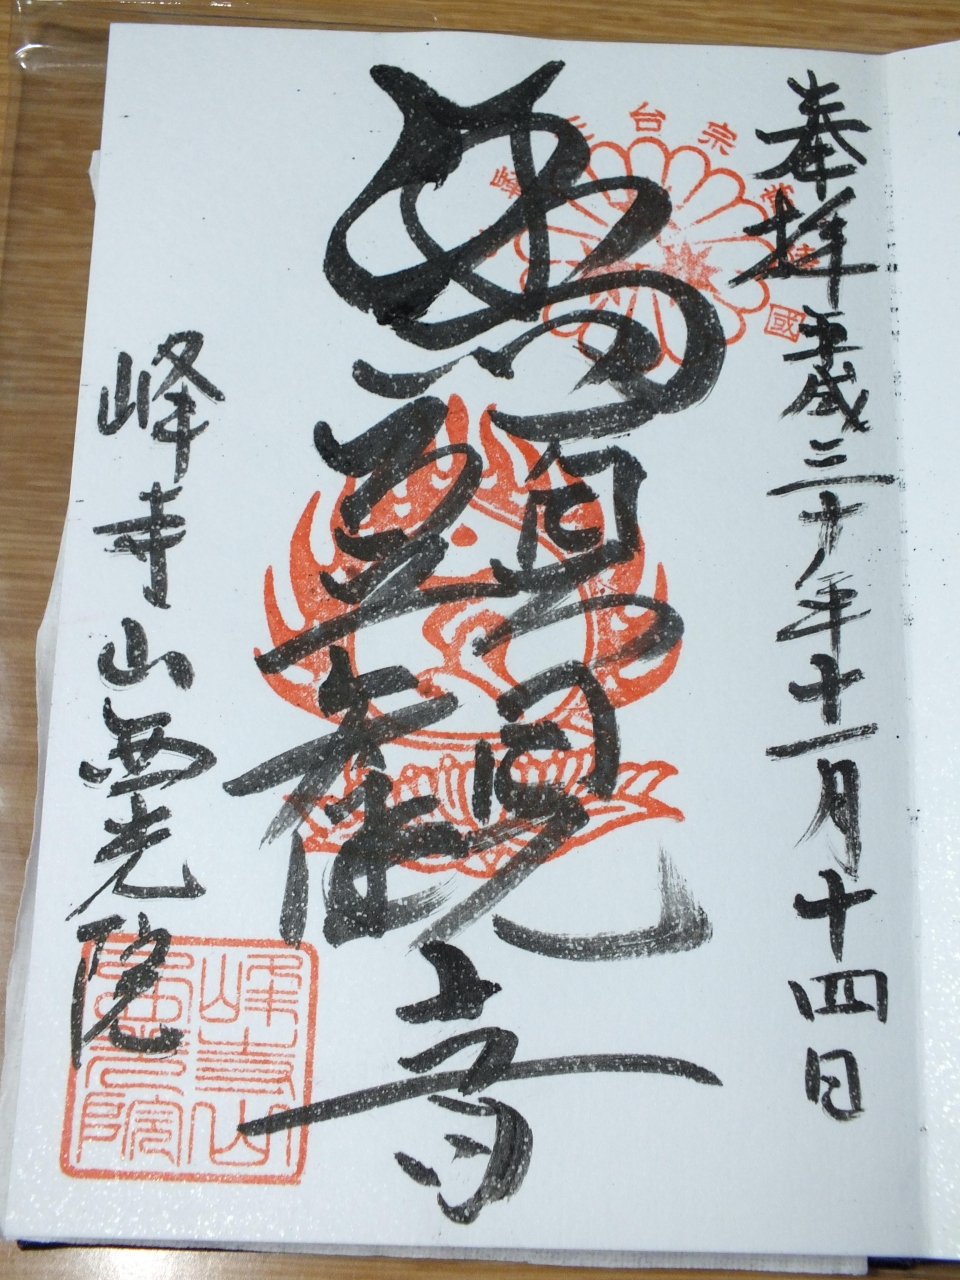 奉拝 平成三十年十一月十四日
馬頭観音
峰寺山西光院
台宗
常陸國
峰
峰寺山
西光院